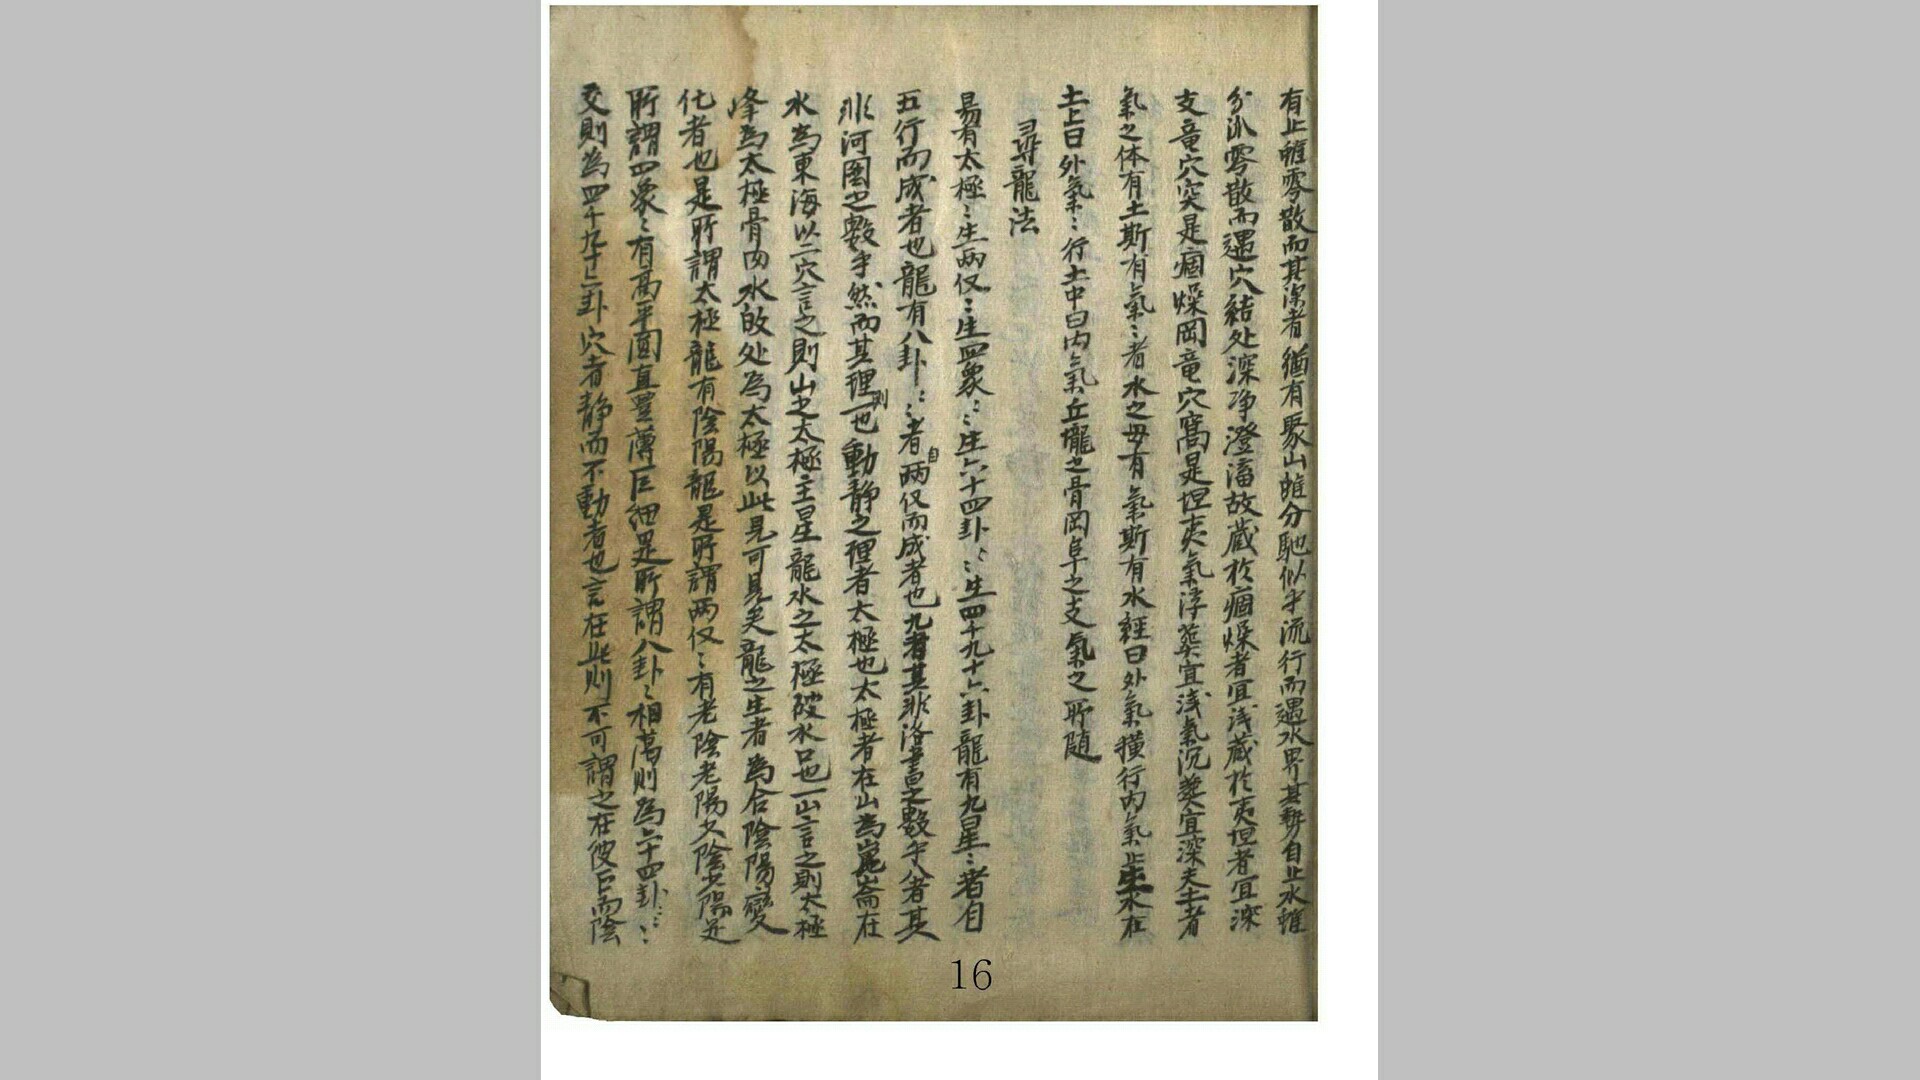 有止雖零散而其深者猶有聚山雖分馳似乎流行而遇水界其勢自止水雖
分派零散而遇穴結处深净澄滀故蔵於痼燥者冝浅蔵於夷坦者冝深
支竜穴突是痼燥岡竜穴窩是坦夷氣浮葬宜浅氣沉葬宜深夫土者
氣之体有土斯有氣〻者水之毋有氣斯有水經曰外氣横行内氣止生水在
土上曰外氣〻行土中曰内氣丘壠之骨岡阜之支氣之所随
尋龍法
易有太極〻生兩仪〻生四象〻〻生六十四卦〻〻生四千九十六卦龍有九星〻者自
五行而成者也龍有八卦〻〻者自兩仪而成者也九者其非洛書之數乎八者其
非河圖之數乎然而其理則一也動静之理者太極也太極者在山為崑崙在
水為東海以二穴言之則山之太極主星龍水之太極破水口也一山言之則太極
峰為太極骨肉水㪇处為太極以此見可見矣龍之生者為合陰陽變
化者也是所謂太極龍有陰陽龍是所謂兩仪〻有老陰老陽少陰少陽是
所謂四象〻有高平圓直豊薄巨細是所謂八卦〻相萬則為六十四卦〻〻
交則為四千九十六卦穴者静而不動者也言在此則不可謂之在彼巳而陰
16